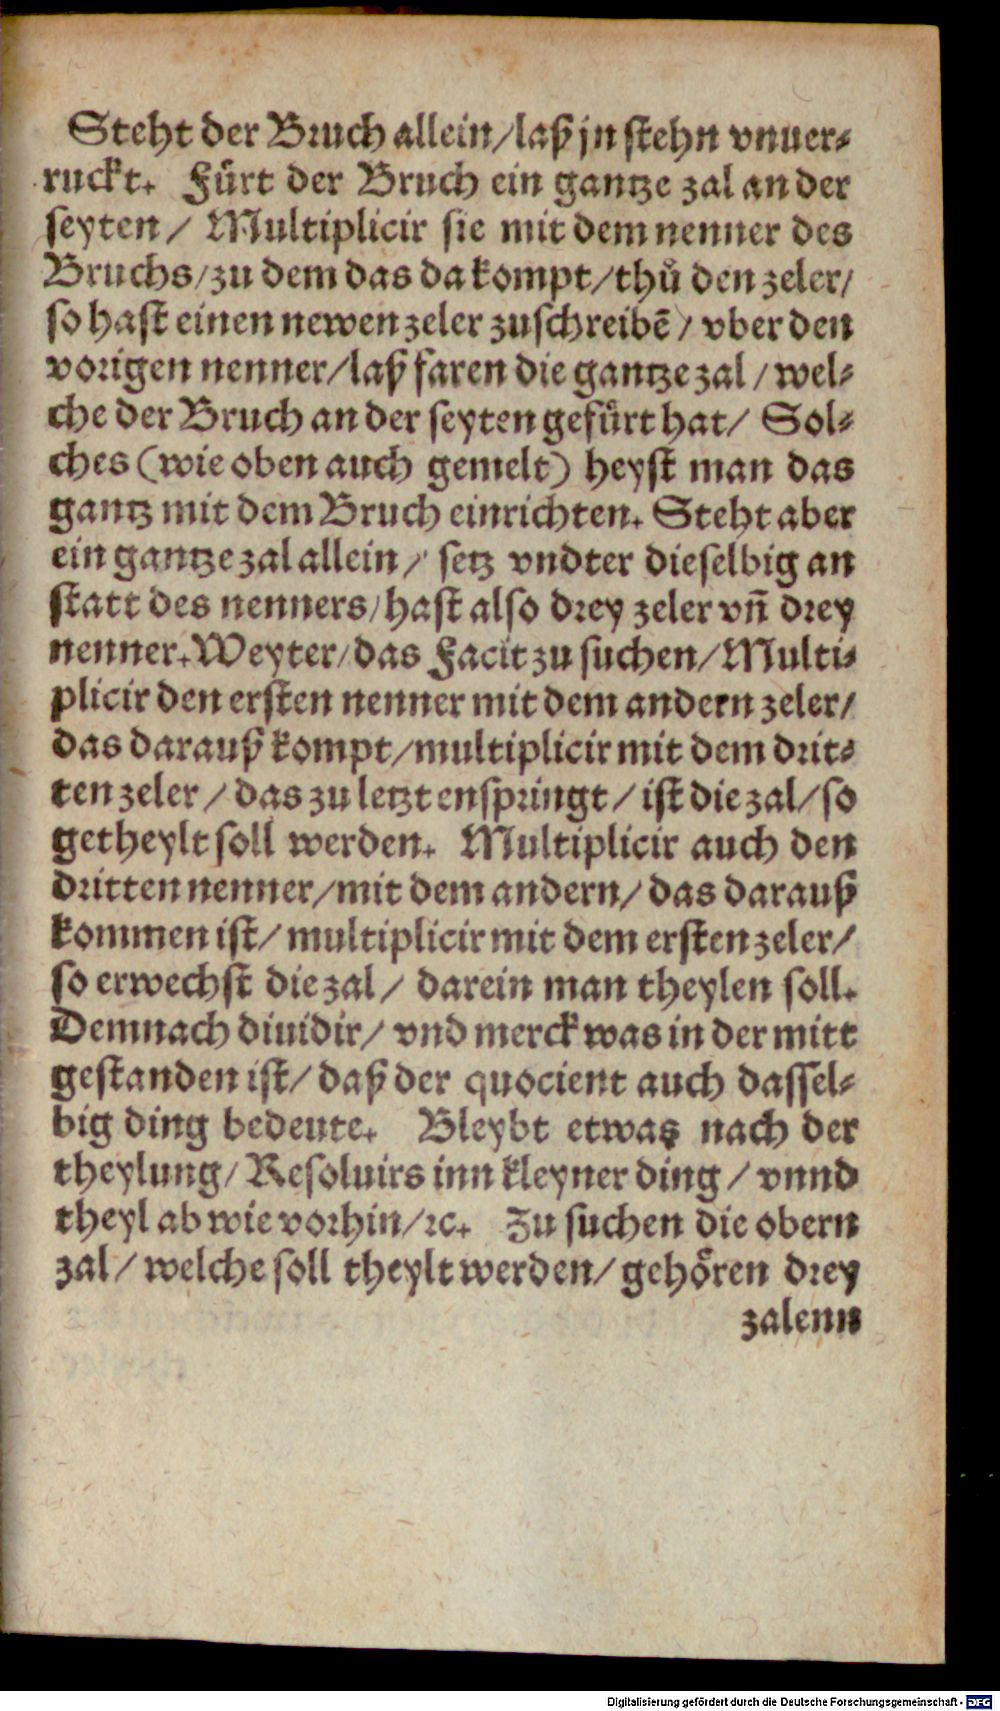 Steht der Bruch allein/laß jn stehn vnuer⸗
ruckt. Fürt der Bruch ein gantze zal an der
seyten/ Multiplicir sie mit dem nenner des
Bruchs/zu dem das da kompt/thů den zeler/
so hast einen newen zeler zuschreibẽ/ vber den
vorigen nenner/laß faren die gantze zal/wel⸗
che der Bruch an der seyten gefürt hat/ Sol⸗
ches (wie oben auch gemelt) heyst man das
gantz mit dem Bruch einrichten. Steht aber
ein gantze zal allein/ setz vndter dieselbig an
statt des nenners/hast also drey zeler vñ drey
nenner. Weyter/das Facit zu suchen/Multi⸗
plicir den ersten nenner mit dem andern zeler/
das darauß kompt/multiplicir mit dem drit⸗
ten zeler/das zu letzt enspringt/ist die zal/so
getheylt soll werden. Multiplicir auch den
dritten nenner/mit dem andern/das darauß
kommen ist/multiplicir mit dem ersten zeler/
so erwechst die zal/ darein man theylen soll.
Demnach diuidir/ vnd merck was in der mitt
gestanden ist/daß der quocient auch dassel⸗
big ding bedeute. Bleybt etwas nach der
theylung/Resoluirs inn kleyner ding/vnnd
theyl ab wie vorhin/ꝛc. Zu suchen die obern
zal/welche soll theylt werden/gehören drey
zalenn
Digitalisierung gefördert durch die Deutsche Forschungsgemeinschaft - DFG